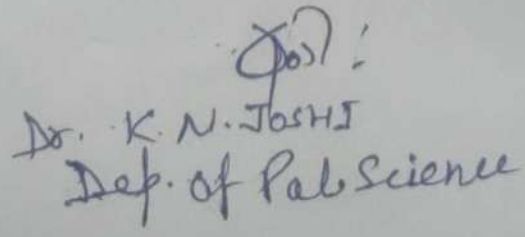 Dr. K. N. JOSHI
Dep. of Pol. Science